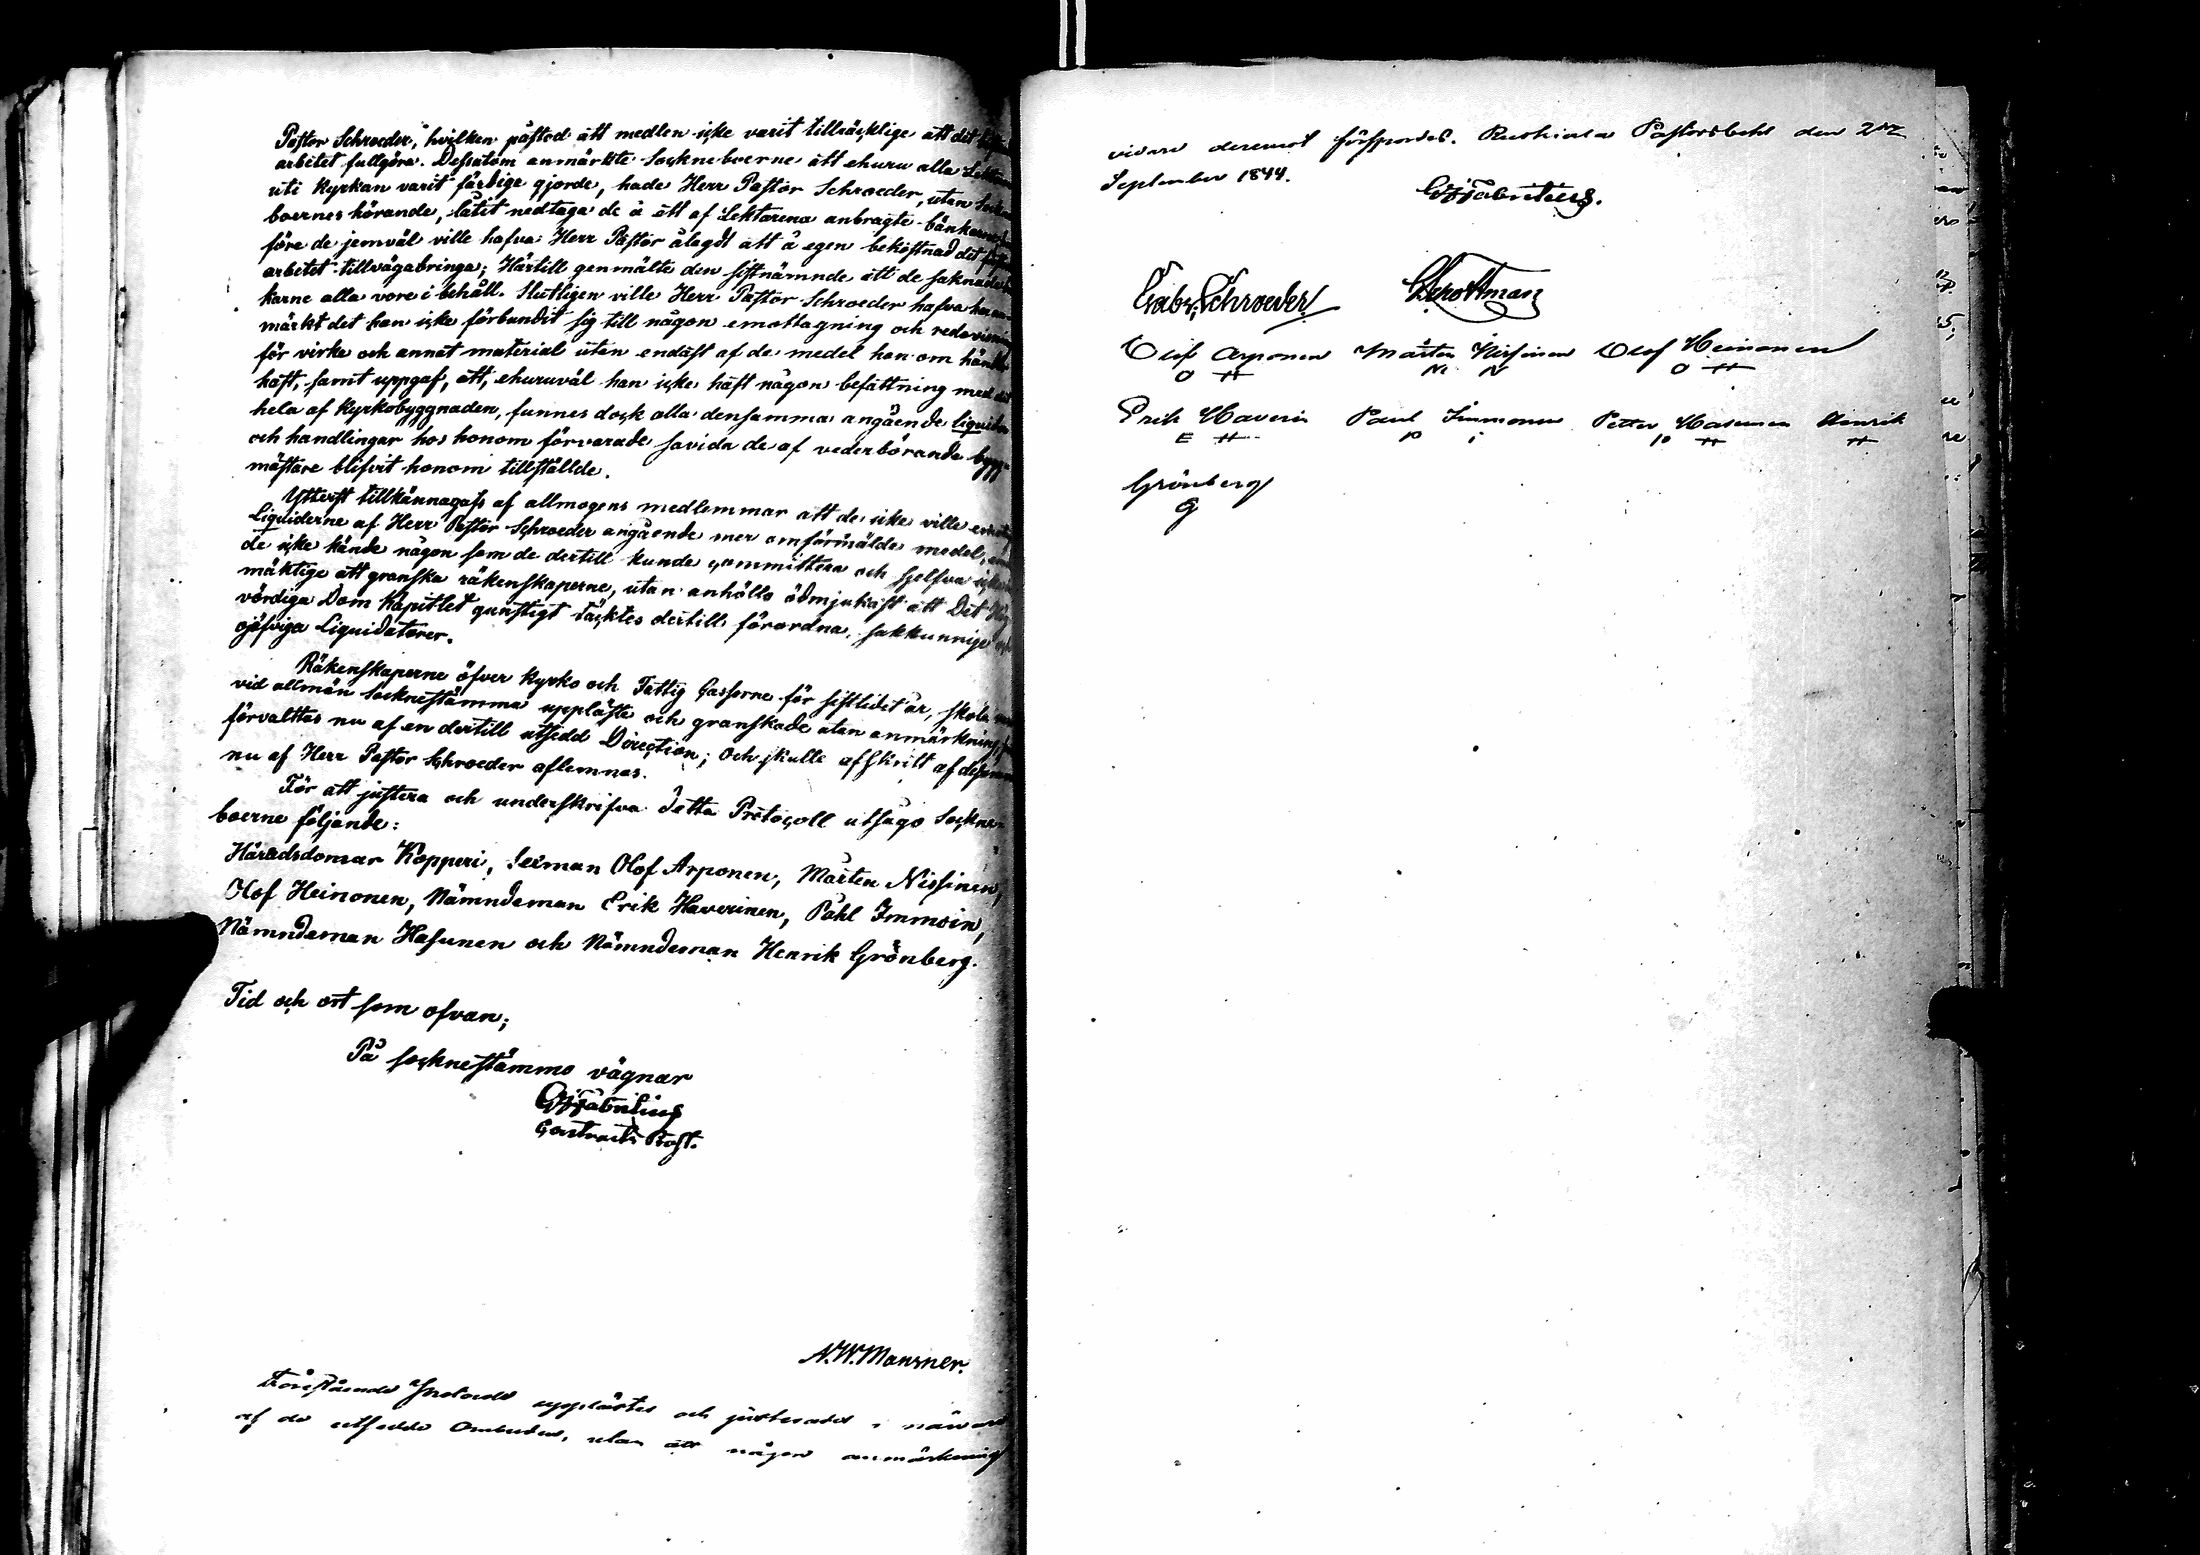 Pastor Schroeder, hvilken påstod att medlen icke varit tillräcklige att det
arbetet fullgöra. Dessutom anmärkte Socknéboerne att ehuru alla Lektarena
uti Kyrkan varit färdige gjorde, hade Herr Pastor Schroeder, utan Sockne
boernes hörande, låtit nedtaga de å ett af Lektarena anbragte bänkarne,
före de jemväl ville hafva Herr Pastor ålagdt att å egen bekostnad det
arbetet tillvägabringa; Härtill genmälte den sistnämnde att de saknade
karne alla vore i behåll. Slutligen ville Herr Pastor Schroeder hafva
märkt det han icke förbundit sig till någon emottagning och redovisning
för virke och annat material utan endast af de medel han om händer
haft, samt uppgaf, att, ehuruväl han icke haft någon befattning med det
hela af Kyrkobyggnaden, funnes dock alla densamma angående liquider
och handlingar hos honom förvarade savida de af vederbörande bygg-
mästare blifvit honom tillställde.
Ytterst tillkännagafs af allmogens medlemmar att de icke ville
Liquiderne af Herr Pastor Schroeder angående mer omförmälde medel,
de icke kände någon som de dertill kunde committera och sjelfva icke
mäktige att granska räkenskaperne, utan anhöllo ödmjukast att Det Hög
vördiga Dom Kapitlet gunstigt täcktes dertill förordna, sakkunnige och
ojäfviga Liquidatorer.
Räkenskaperne öfver Kyrko och Fattig Casserne för sistlidit år, skola
vid allmän Socknestämma uppläste och granskade utan anmärkning,
förvaltas nu af en dertill utsedd Direction; och skulle afskrift af desamma
nu af Herr Pastor Schroeder aflemnas.
För att justera och underskrifva detta Protocoll utsågo Sockne-
boerne följande:
Häradsdomar Kopperi, Sexman Olof Arponen, Mårten Nissinen,
Olof Heinonen, Nämndeman Erik Haverinen, Påhl Immoin,
Nämndeman Hasunen och Nämndeman Henrik Grönberg.
Tid och ort som ofvan;
På Socknestämmo vägnar
Fabritius
Contracts Prost.
N. W. Mansner.
Förestående upplästes och justerades i närvaro
af de utsedde Ombuden, utan att någon anmärkning
vidare deremot försportes. Ruskiala Pastorsbohl den 2dra
September 1844.
Fabritius.
Gabr. Schroeder
Olof Arponen Mårten Nissinen Olof Heinonen
O H N N O H
Erik Haverin Paul Immonen Petter Hasunen Henrik
E H P I P H H
Grönberg
G